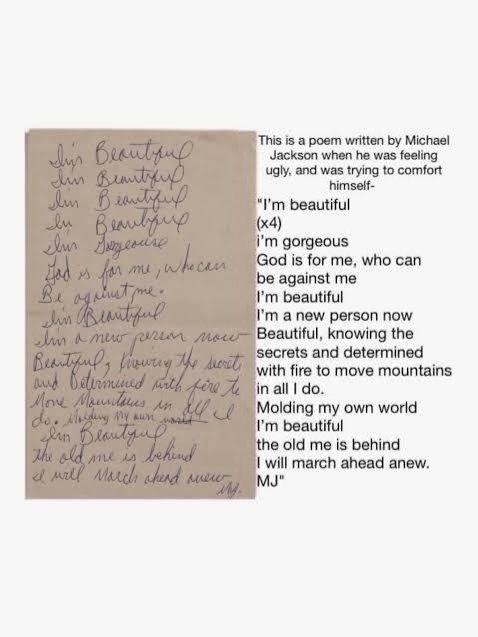 I'm Beautiful
I'm Beautiful
I'm Beautiful
I'm Beautiful
I'm Gorgeous
God is for me, who can
Be against me.
I'm Beautiful
I'm a new person now
Beautiful, knowing the secrets
and Determined with fire to
Move Mountains in all I
do. Molding my own world
I'm Beautiful
the old me is behind
I will March ahead anew
MJ.
This is a poem written by Michael
Jackson when he was feeling
ugly, and was trying to comfort
himself-
"I'm beautiful
(x4)
i'm gorgeous
God is for me, who can
be against me
I'm beautiful
I'm a new person now
Beautiful, knowing the
secrets and determined
with fire to move mountains
in all I do.
Molding my own world
I'm beautiful
the old me is behind
I will march ahead anew.
MJ"